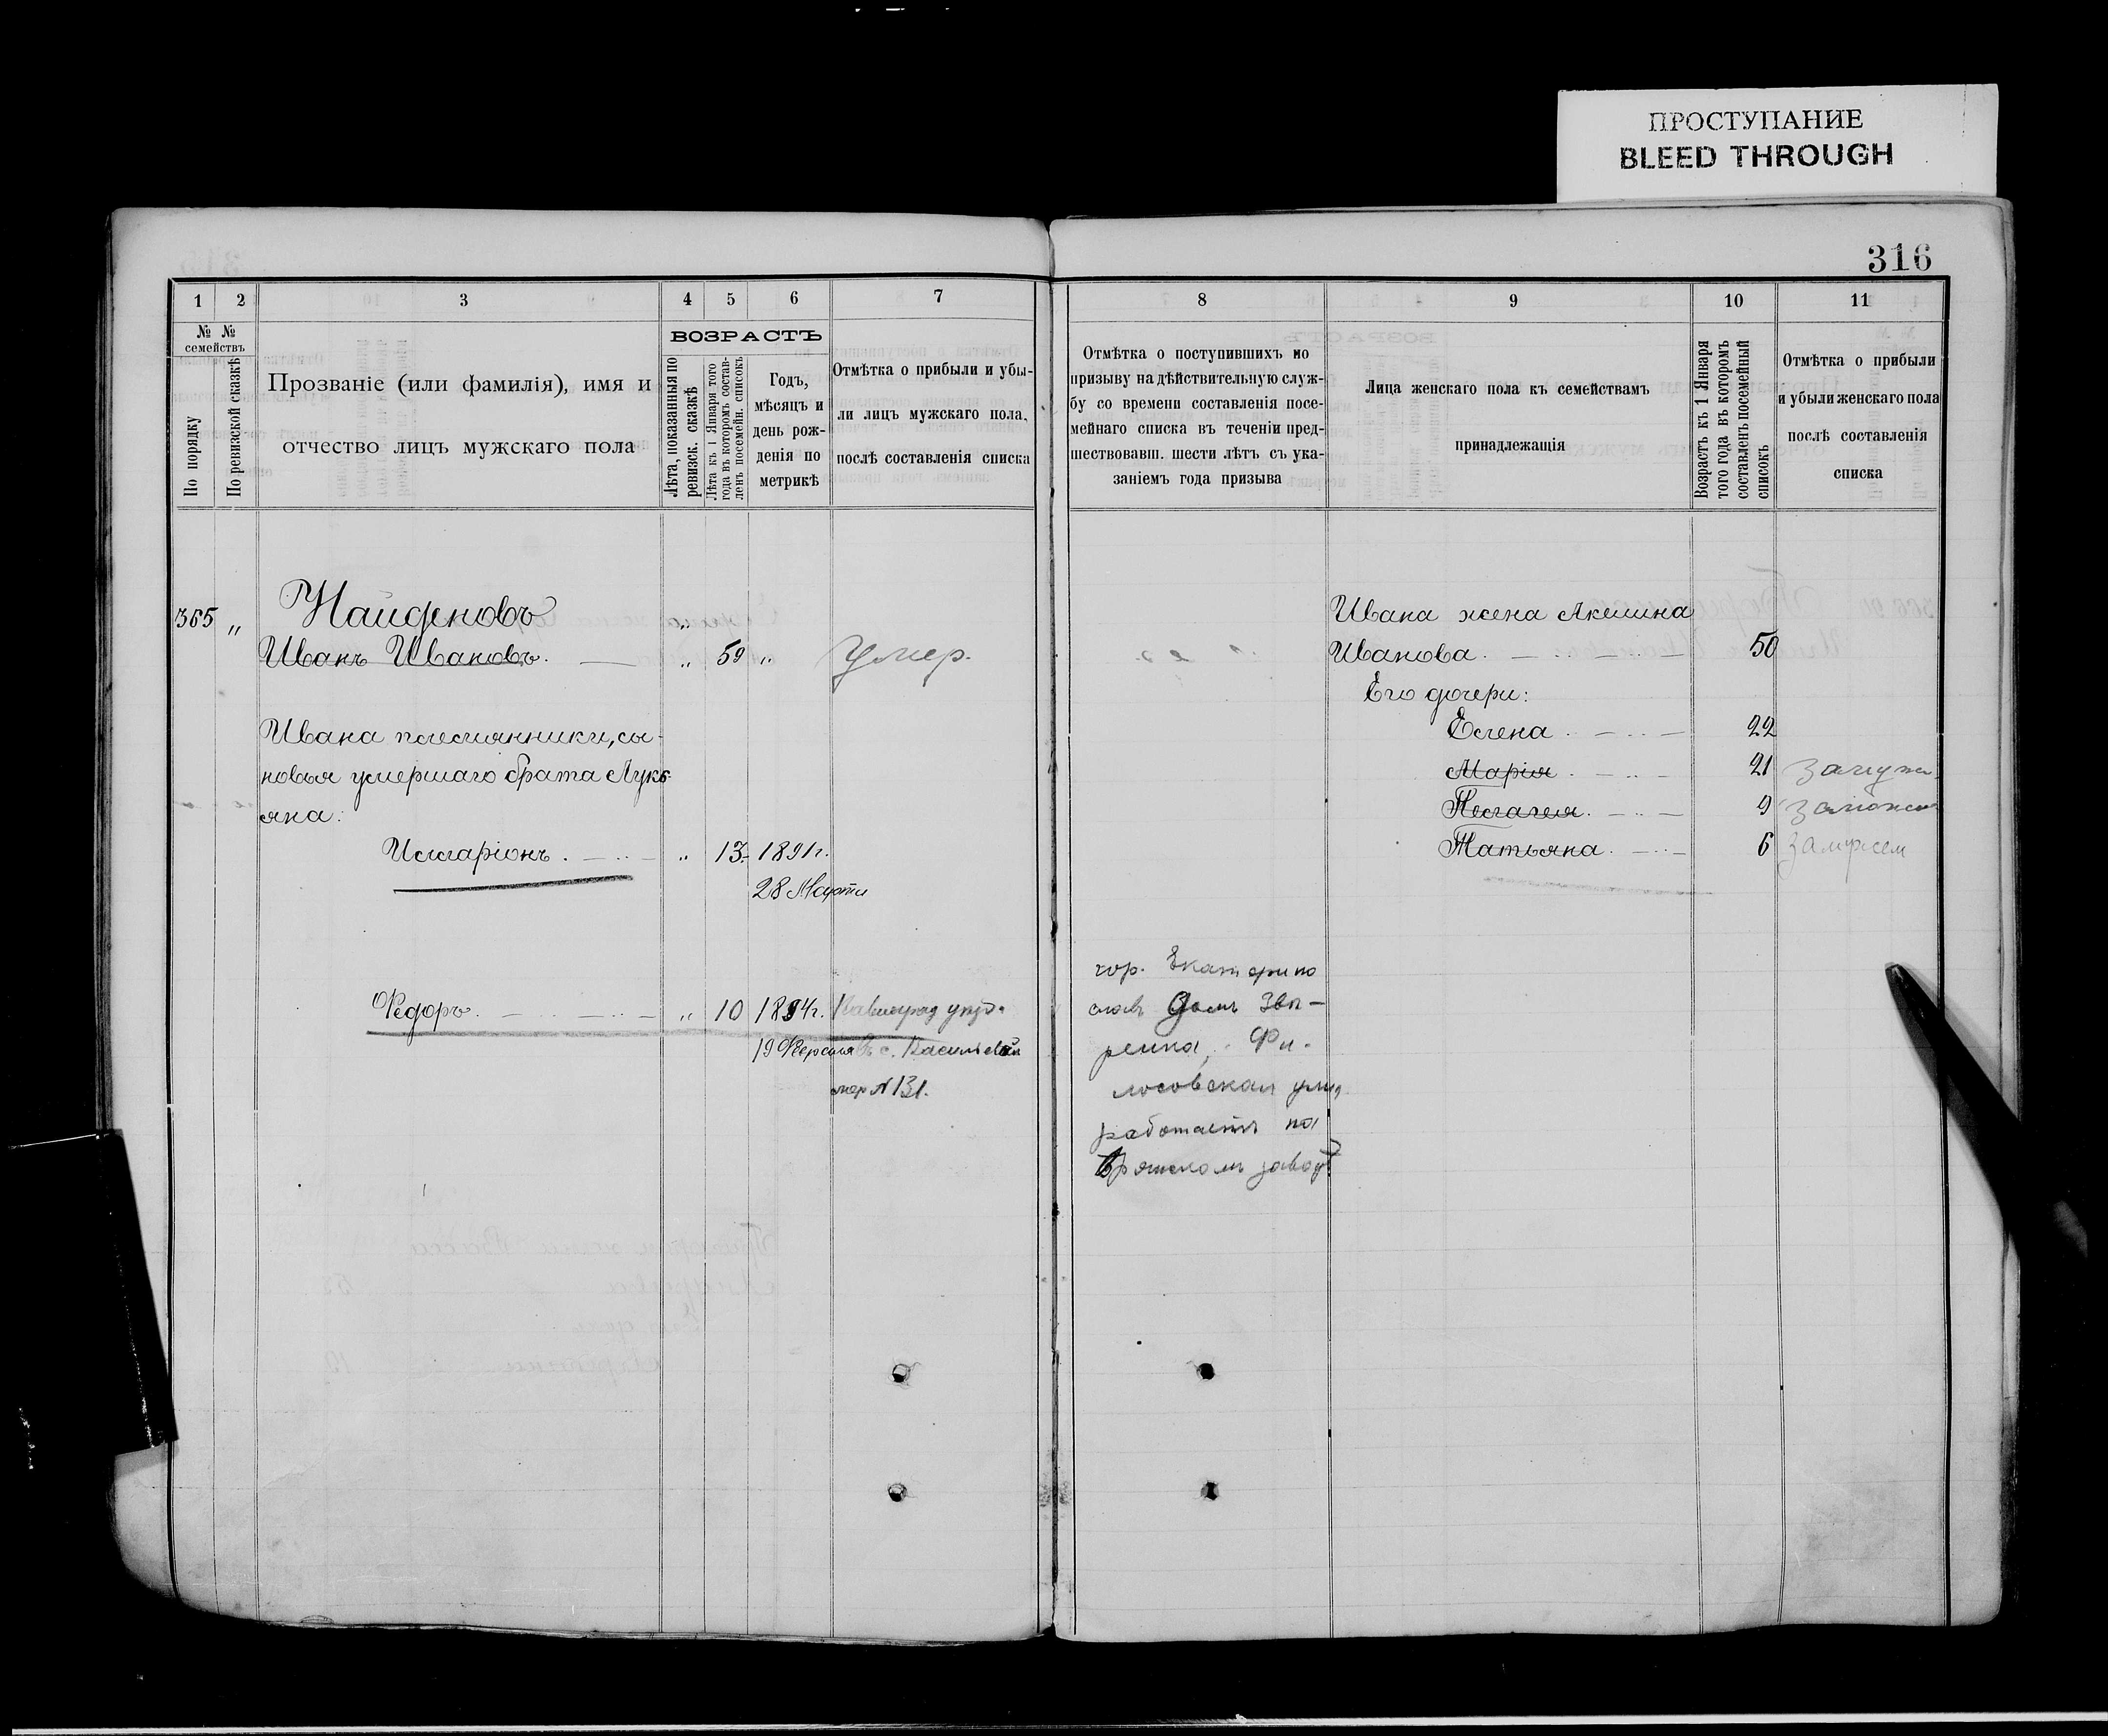 ПРОСТУПАНИЕ
BLEED THROUGH
316
1 2 3 4 5 6 7
№ № семействъ
По порядку
По ревизской сказкѣ
Прозваніе (или фамилія), имя и
отчество лицъ мужскаго пола
ВОЗРАСТЪ
Лѣта, показанныя по
ревизск. сказкѣ
Лѣта къ 1 Января того
года въ которомъ состав-
ленъ посемейн. списокъ
Годъ,
мѣсяцъ и
день рож-
денія по
метрикѣ
Отмѣтка о прибыли и убы-
ли лицъ мужскаго пола,
послѣ составленія списка
365 „ Найденовъ „
Иванъ Ивановъ. „ 59 „ умер.
Ивана племянники, сы-
новья умершаго брата Лукь-
яна:
Илларіонъ „ 13 1891г.
28 Марта
Федоръ „ 10 1894г.
19 Февраля
мер № 131.
8 9 10 11
Отмѣтка о поступившихъ по
призыву на дѣйствительную служ-
бу со времени составленія посе-
мейнаго списка въ теченіи пред-
шествовавш. шести лѣтъ съ ука-
заніемъ года призыва
Лица женскаго пола къ семействамъ
принадлежащія
Возрастъ къ 1 Января
того года въ которомъ
составленъ посемейный
списокъ
Отмѣтка о прибыли
и убыли женскаго пола
послѣ составленія
списка
Ивана жена Акилина
Иванова. 50
Его дочери:
Елена 22
Марія 21 замужем
Пелагея 9 замужем
Татьяна 6 замужем
гор. Екатерино
славъ домъ
работаетъ на
Брянскомъ заводѣ